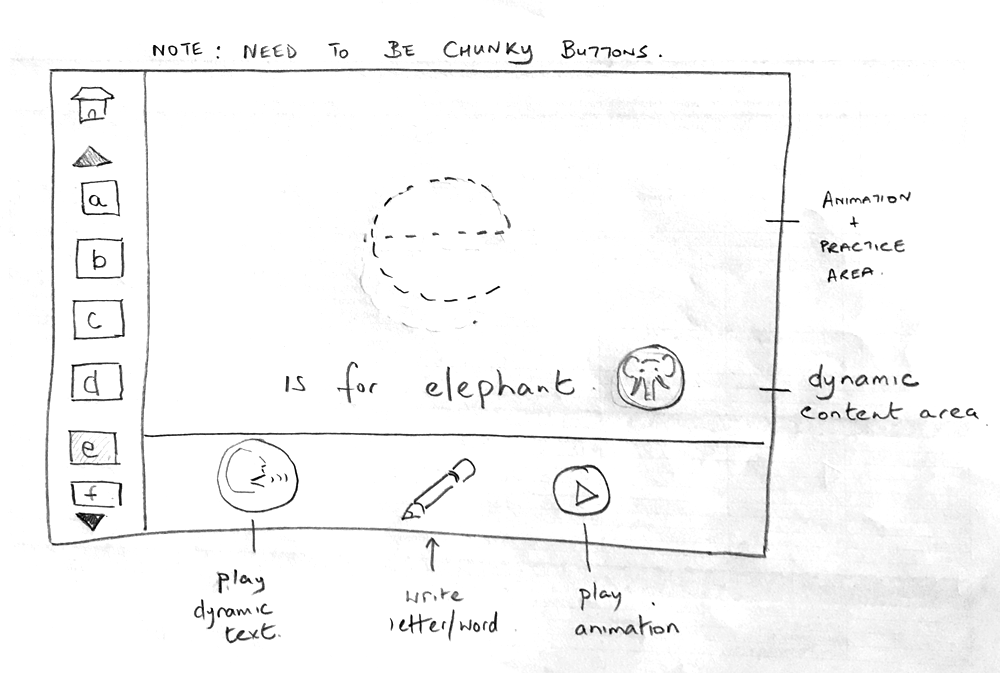 NOTE: NEED TO BE CHUNKY BUTTONS.
a
b
c
d
e
f
is for elephant.
ANIMATION
+
PRACTICE
AREA.
dynamic
content area
play
dynamic
text.
write
letter/word
play
animation